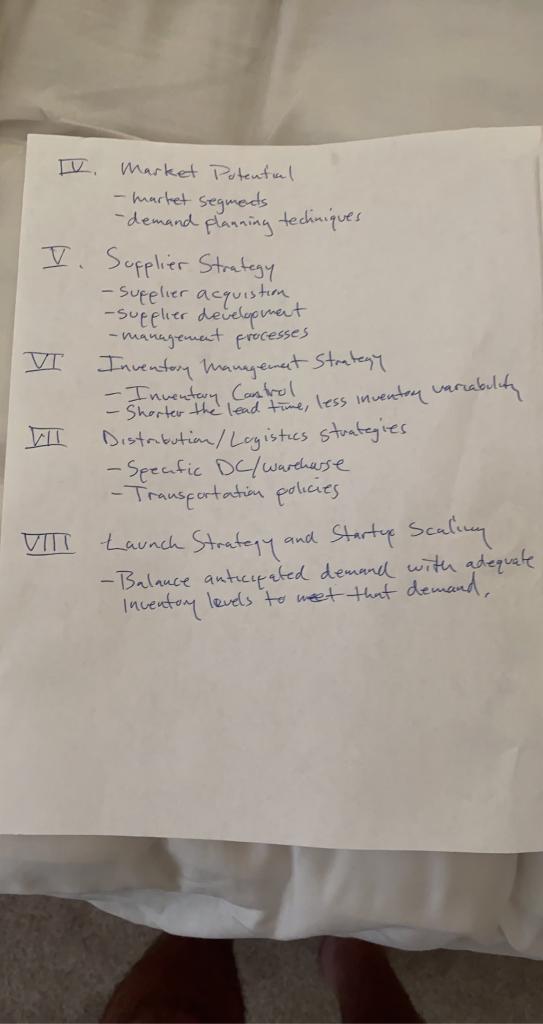 IV. Market Potential
- market segments
- demand planning techniques
V. Supplier Strategy
- supplier acquistion
- supplier development
- management processes
VI Inventory Management Strategy
- Inventory Control
- Shorter the lead time, less inventory variability
VII Distribution/Logistics Strategies
- Specific DC/warehouse
- Transportation policies
VIII Launch Strategy and Startup Scaling
- Balance anticipated demand with adequate
inventory levels to meet that demand.